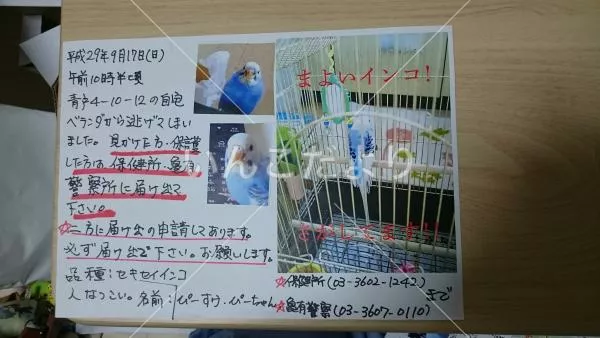 平成29年9月17日(日)
午前10時半頃
青戸4-10-12の自宅
ベランダから逃げてしまい
ました。見かけた方・保護
した方は保健所・亀有
警察所に届け出て
下さい。
☆二方に届け出の申請してあります。
必ず届け出て下さい。お願いします。
品種:セキセイインコ
人なつこい。名前:ぴーすけ・ぴーちゃん
まよいインコ!
さがしてます!!
いんこだより
☆保健所(03-3602-1242)
☆亀有警察(03-3607-0110)
まで